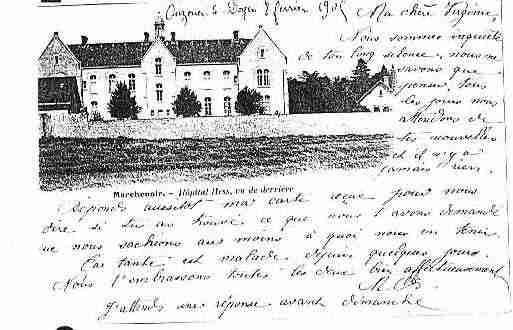 Ouzouer le Doyen 2 février 1905
Ma chère Virginie,
Nous sommes inquiets
de ton long silence, nous ne
savons que
penser, tous
les jours nous
attendons de
tes nouvelles
et il n'y a
jamais rien.
Marchenoir. - Hôpital Hess, vu de derrière
Réponds aussitôt ma carte reçue pour nous
dire si tu as trouvé ce que nous t'avons demandé
que nous sachions au moins à quoi nous en tenir.
Ta tante est malade depuis quelques jours.
Nous t'embrassons toutes les deux bien affectueusement
J'attends une réponse avant dimanche